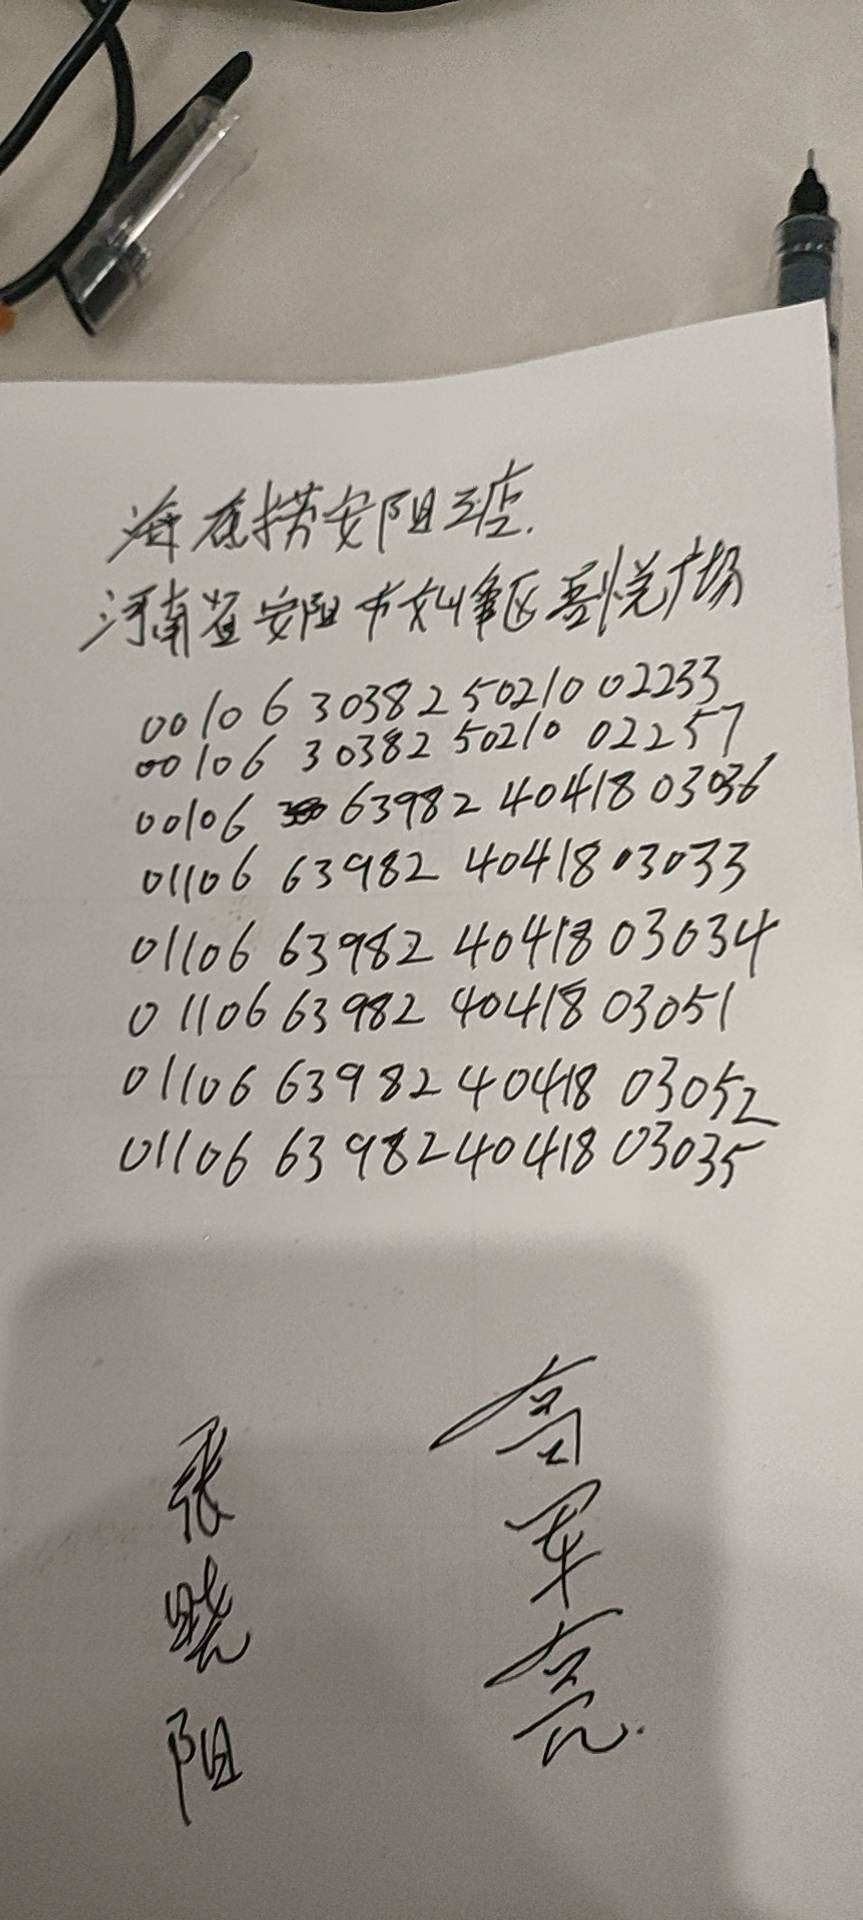 海底捞安阳三店.
河南省安阳市文峰区吾悦广场
00106 30382 50210 02233
00106 30382 50210 02257
00106 63982 40418 03036
01106 63982 40418 03033
01106 63982 40418 03034
01106 63982 40418 03051
01106 63982 40418 03052
01106 63982 40418 03035
高军亮.
张晓阳